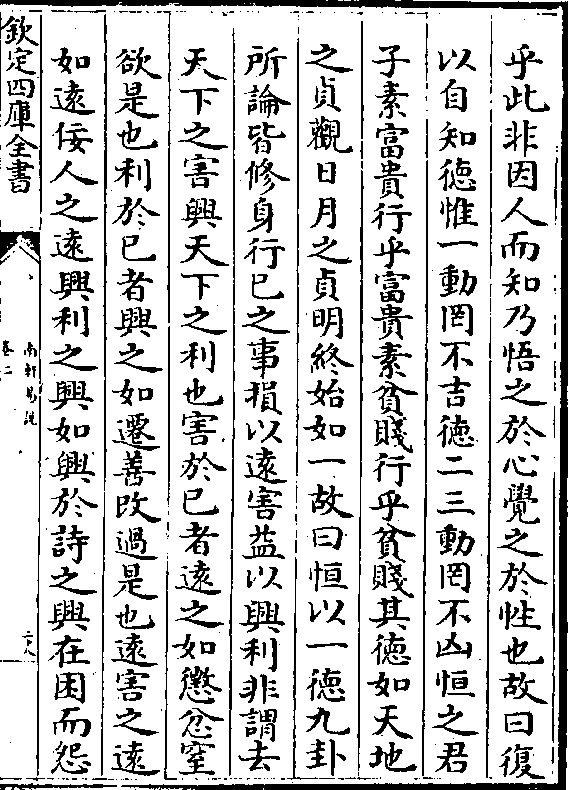 乎此非因人而知乃悟之於心覺之於性也故曰復
以自知德惟一動罔不吉德二三動罔不凶恒之君
子素富貴行乎富貴素貧賤行乎貧賤其德如天地
之貞觀日月之貞明終始如一故曰恒以一德九卦
所論皆修身行已之事損以遠害益以興利非謂去
天下之害興天下之利也害於已者遠之如懲忿窒
欲是也利於已者興之如遷善改過是也遠害之遠
如遠佞人之遠興利之興如興於詩之興在困而怨
欽定四庫全書
南軒易說
卷二
二八